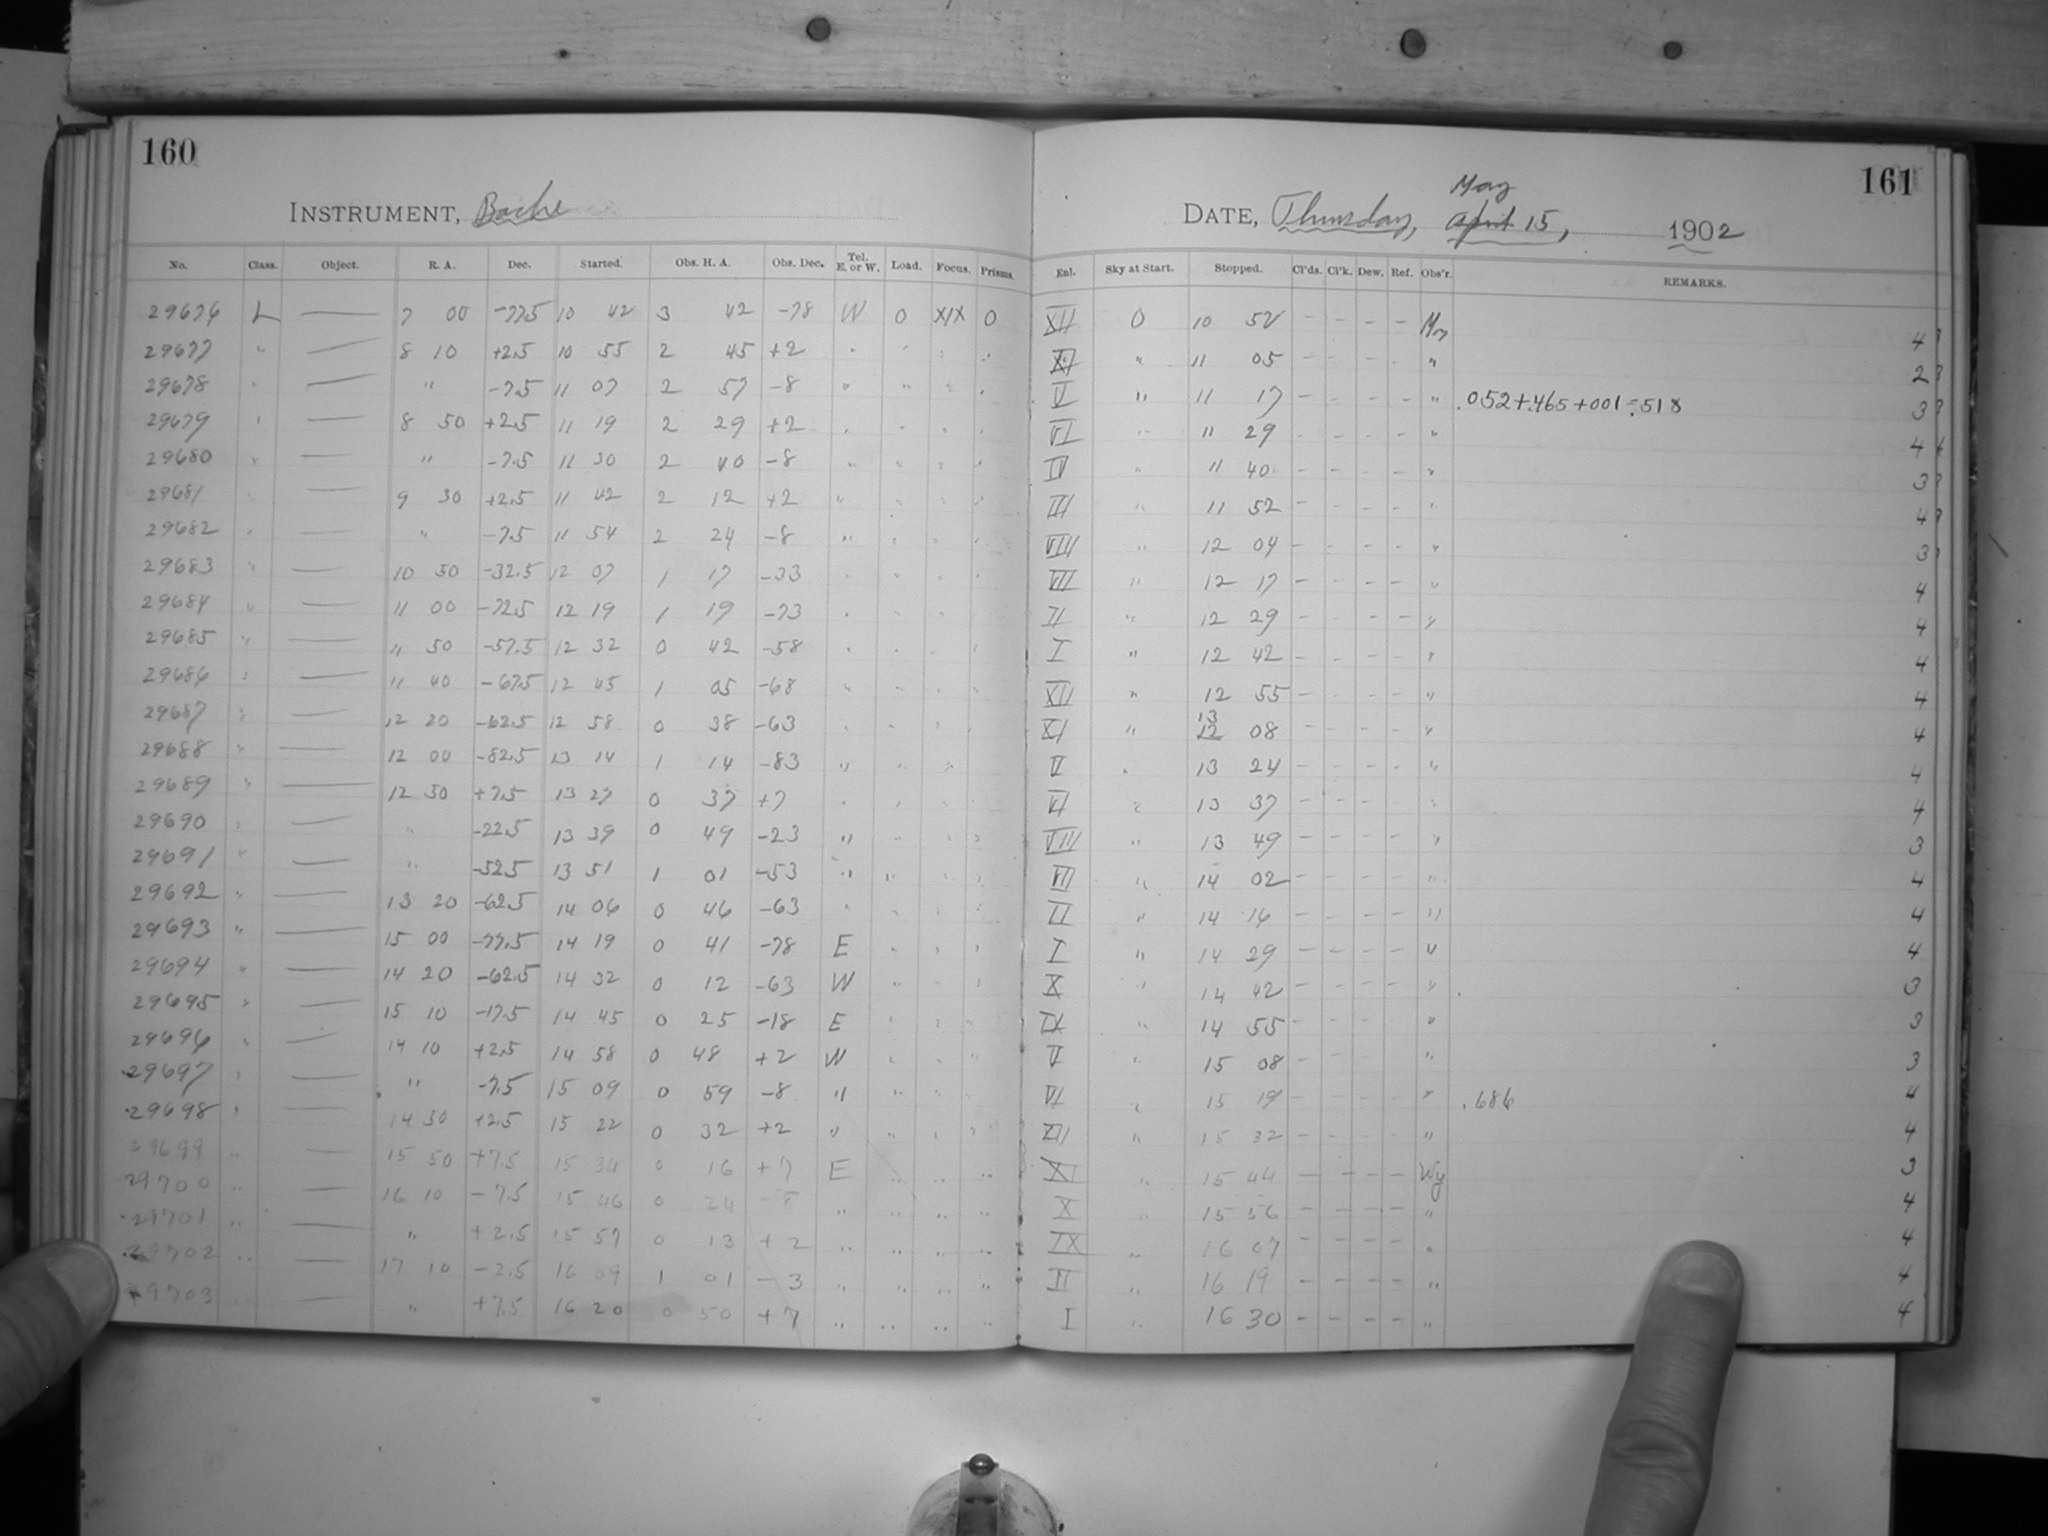 160
161
INSTRUMENT, Bache
May
DATE, Thursday, April 15, 1902
No. Class. Object. R. A. Dec. Started. Obs. H. A. Obs. Dec. Tel. E. or W. Load. Focus. Prisms. Enl. Sky at Start. Stopped. Cl'ds. Cl'k. Dew. Ref. Obs'r. REMARKS.
29676 L — 7 00 -77.5 10 42 3 42 -78 W 0 XIX 0 XII 0 10 52 - - - - 4
29677 " — 8 10 +2.5 10 55 2 45 +2 " " " " XI " 11 05 - - - - " 2
29678 " — " -7.5 11 07 2 57 -8 " " " " V " 11 17 - - - - " .052+.465+001=.518 3
29679 " — 8 50 +2.5 11 19 2 29 +2 " " " " VI " 11 29 - - - - " 4
29680 " — " -7.5 11 30 2 40 -8 " " " " IV " 11 40 - - - - " 3
29681 " — 9 30 +2.5 11 42 2 12 +2 " " " " III " 11 52 - - - - " 4
29682 " — " -7.5 11 54 2 24 -8 " " " " VIII " 12 04 - - - - " 3
29683 " — 10 50 -32.5 12 07 1 17 -33 " " " " VII " 12 17 - - - - " 4
29684 " — 11 00 -72.5 12 19 1 19 -73 " " " " II " 12 29 - - - - " 4
29685 " — " 50 -57.5 12 32 0 42 -58 " " " " I " 12 42 - - - - " 4
29686 " — 11 40 -67.5 12 45 1 05 -68 " " " " XII " 12 55 - - - - " 4
29687 " — 12 20 -62.5 12 58 0 38 -63 " " " " XI " 13 12 08 - - - - " 4
29688 " — 12 00 -82.5 13 14 1 14 -83 " " " V " 13 24 - - - - " 4
29689 " — 12 50 +7.5 13 27 0 37 +7 " " " " VI " 13 37 - - - - " 4
29690 " — " -22.5 13 39 0 49 -23 " " " " VIII " 13 49 - - - - " 3
29691 " — " -52.5 13 51 1 01 -53 " " " " VII " 14 02 - - - - " 4
29692 " — 13 20 -62.5 14 06 0 46 -63 " " " " II " 14 16 - - - - " 4
29693 " — 15 00 -77.5 14 19 0 41 -78 E " " " I " 14 29 - - - - " 4
29694 " — 14 20 -62.5 14 32 0 12 -63 W " " " X " 14 42 - - - - " 3
29695 " — 15 10 -17.5 14 45 0 25 -18 E " " " IX " 14 55 - - - - " 3
29696 " — 14 10 +2.5 14 58 0 48 +2 W " " " V " 15 08 - - - - " 3
29697 " — " -7.5 15 09 0 59 -8 " " " " VI " 15 19 - - - - " .686 4
29698 " — 14 50 +2.5 15 22 0 32 +2 " " " " XII " 15 32 - - - - " 4
29699 " — 15 50 +7.5 15 34 0 16 +7 E " " " XI " 15 44 - - - - Wy 3
29700 " — 16 10 -7.5 15 46 0 24 -8 " " " " X " 15 56 - - - - " 4
29701 " — " +2.5 15 57 0 13 +2 " " " " IX " 16 07 - - - - " 4
29702 " — 17 10 -2.5 16 09 1 01 -3 " " " " II " 16 19 - - - - " 4
29703 " — " +7.5 16 20 0 50 +7 " " " " I " 16 30 - - - - " 4